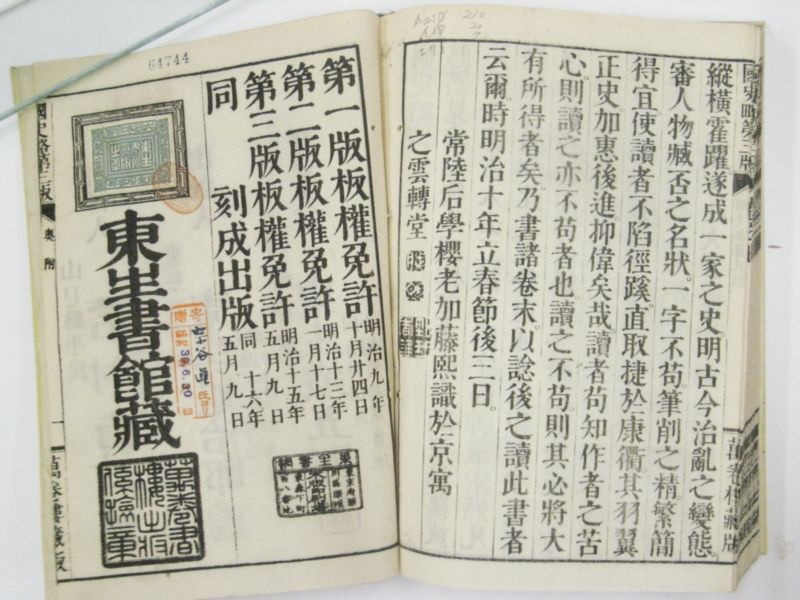 縱橫霍躍遂成一家之史明古今治亂之變態
審人物臧否之名狀一字不苟筆削之精繁簡
得宜使讀者不陷徑蹊直取捷於康衢其羽翼
正史加惠後進抑偉矣哉讀者苟知作者之苦
心則讀之亦不苟者也讀之不苟則其必將大
有所得者矣乃書諸卷末以諗後之讀此書者
云爾時明治十年立春節後三日
常陸后學櫻老加藤熙識於京寓
之雲轉堂
64744
第一版板權免許明治九年十月廿四日
第二版板權免許明治十三年一月十七日
第三版板權免許明治十五年五月九日
同刻成出版同十六年五月九日
東生書館藏
寄贈
昭和36.6.30日
國史略第三版
奧附
萬卷樓藏版
國史略第三版
萬卷樓藏版